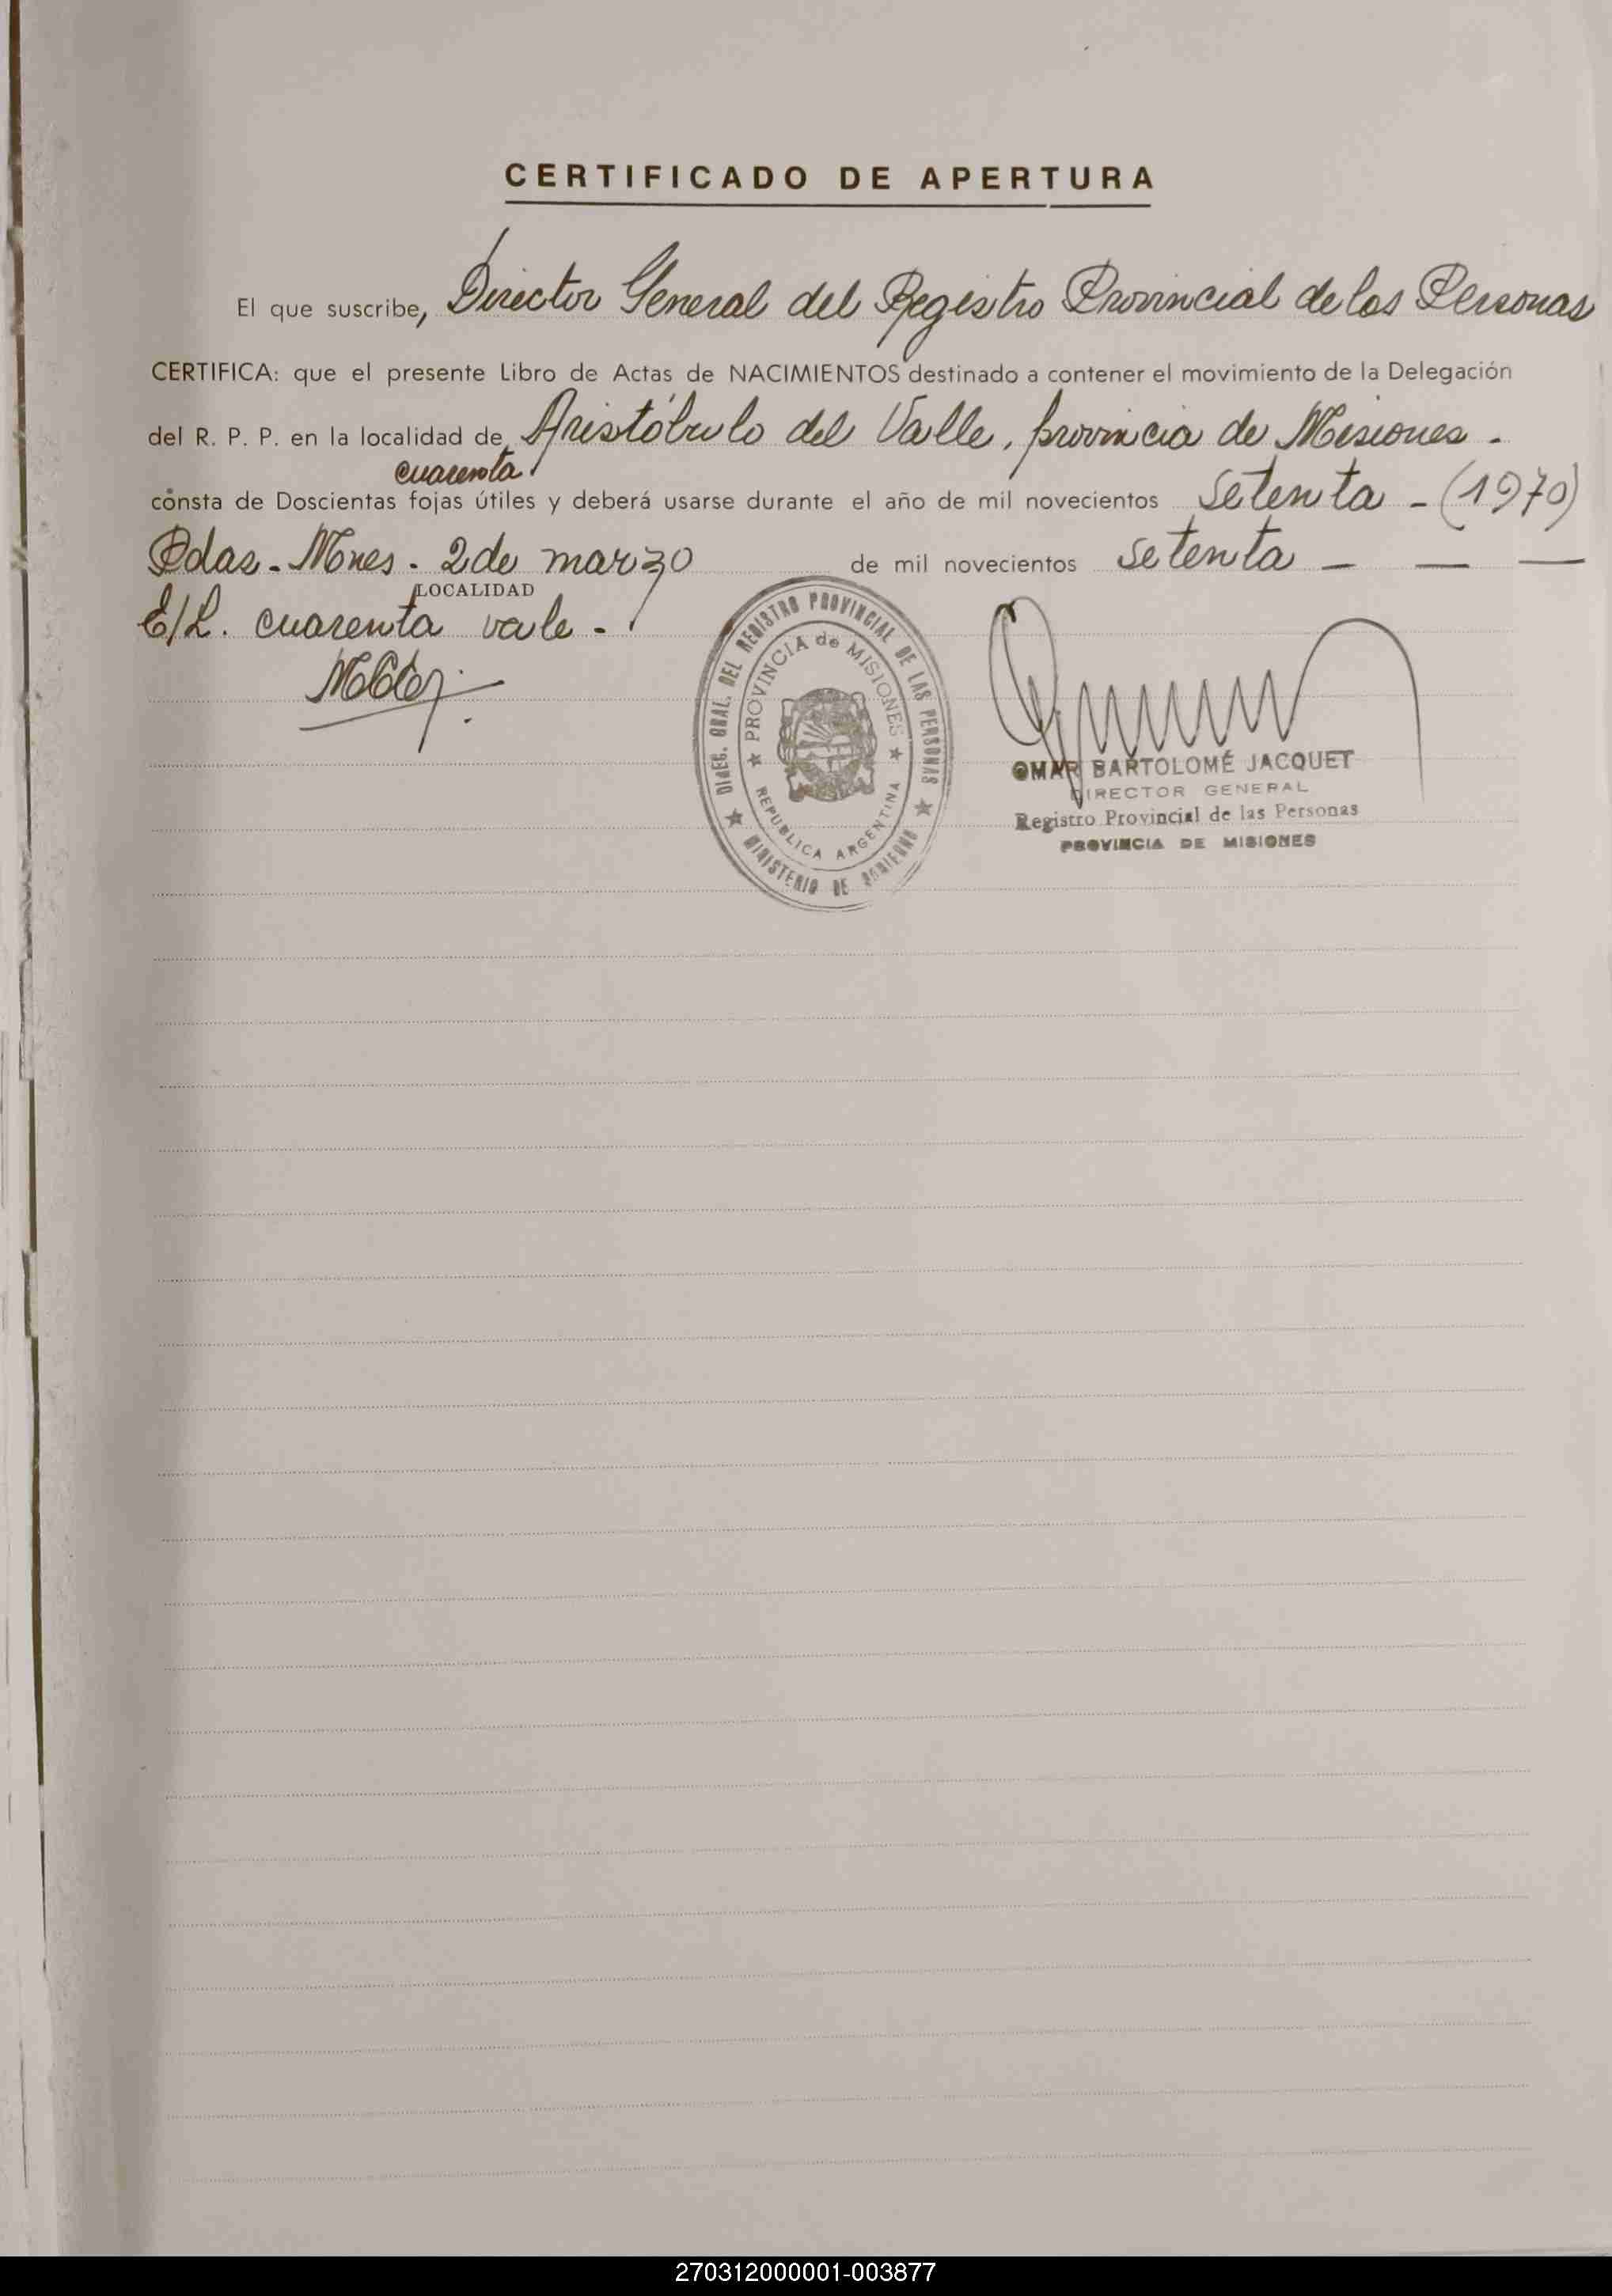 CERTIFICADO DE APERTURA
El que suscribe, Director General del Registro Provincial de las Personas
CERTIFICA: que el presente Libro de Actas de NACIMIENTOS destinado a contener el movimiento de la Delegación
del R. P. P. en la localidad de Aristóbulo del Valle, provincia de Misiones.
cuarenta
consta de Doscientas fojas útiles y deberá usarse durante el año de mil novecientos setenta - (1970)
Pdas - Mnes. 2 de marzo de mil novecientos setenta - — —
LOCALIDAD
E/L. cuarenta vale -
DIREC. GRAL. DEL REGISTRO PROVINCIAL DE LAS PERSONAS
PROVINCIA de MISIONES
REPUBLICA ARGENTINA
MINISTERIO DE GOBIERNO
OMAR BARTOLOMÉ JACQUET
DIRECTOR GENERAL
Registro Provincial de las Personas
PROVINCIA DE MISIONES
270312000001-003877